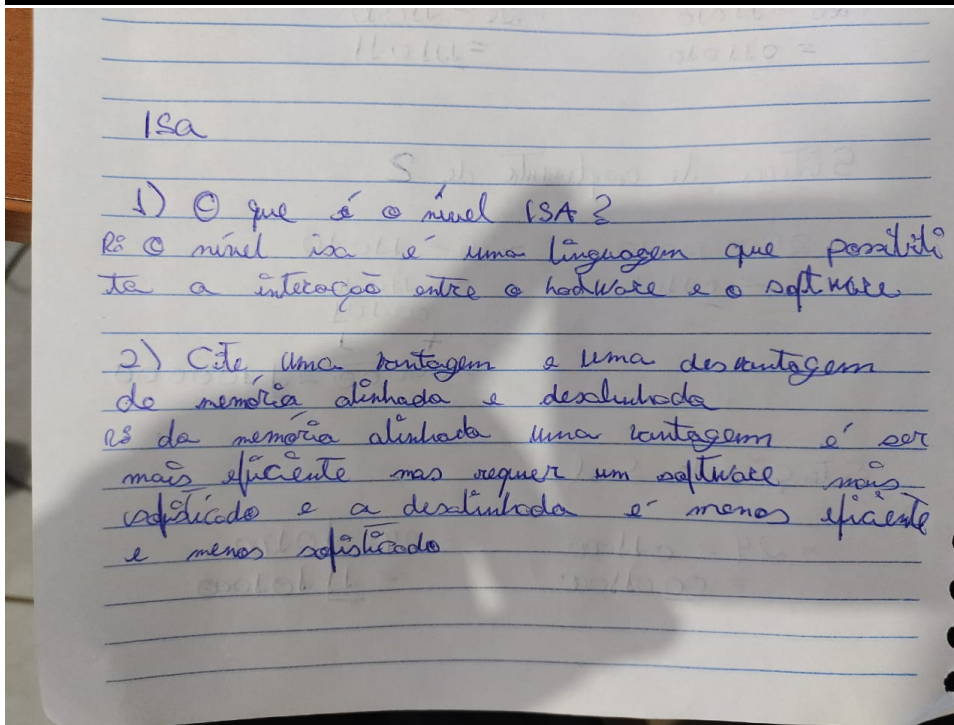 ISa
1) O que é o nível ISA?
R: O nível isa é uma linguagem que possibili
ta a interação entre o hadware e o software
2) Cite uma vantagem e uma desvantagem
de memória alinhada e desalinhada
R: da memória alinhada uma vantagem é ser
mais eficiente mas requer um software mais
sofisticado e a desalinhada é menos eficiente
e menos sofisticado